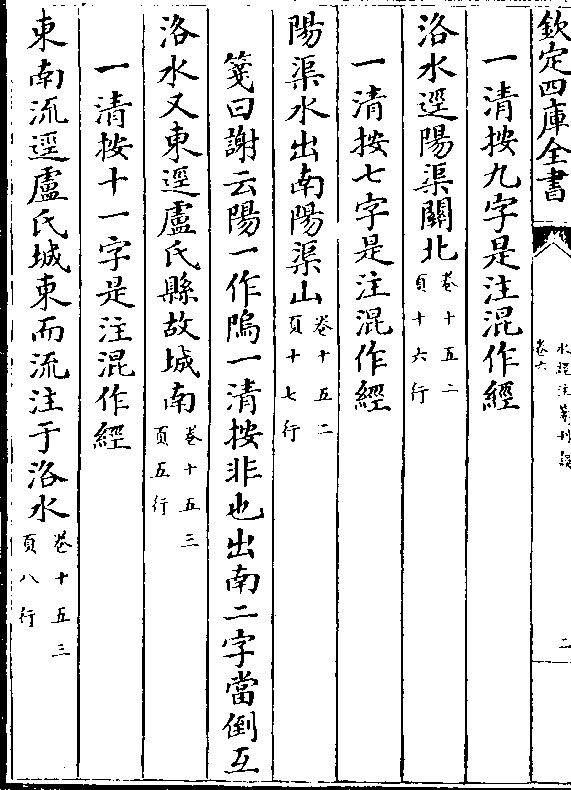 欽定四庫全書
水經注箋刊誤
卷六
二
一清按九字是注混作經
洛水逕陽渠關北卷十五二頁十六行
一清按七字是注混作經
陽渠水出南陽渠山卷十五二頁十七行
箋曰謝云陽一作隝一清按非也出南二字當倒互
洛水又東逕盧氏縣故城南卷十五三頁五行
一清按十一字是注混作經
東南流逕盧氏城東而流注于洛水卷十五三頁八行